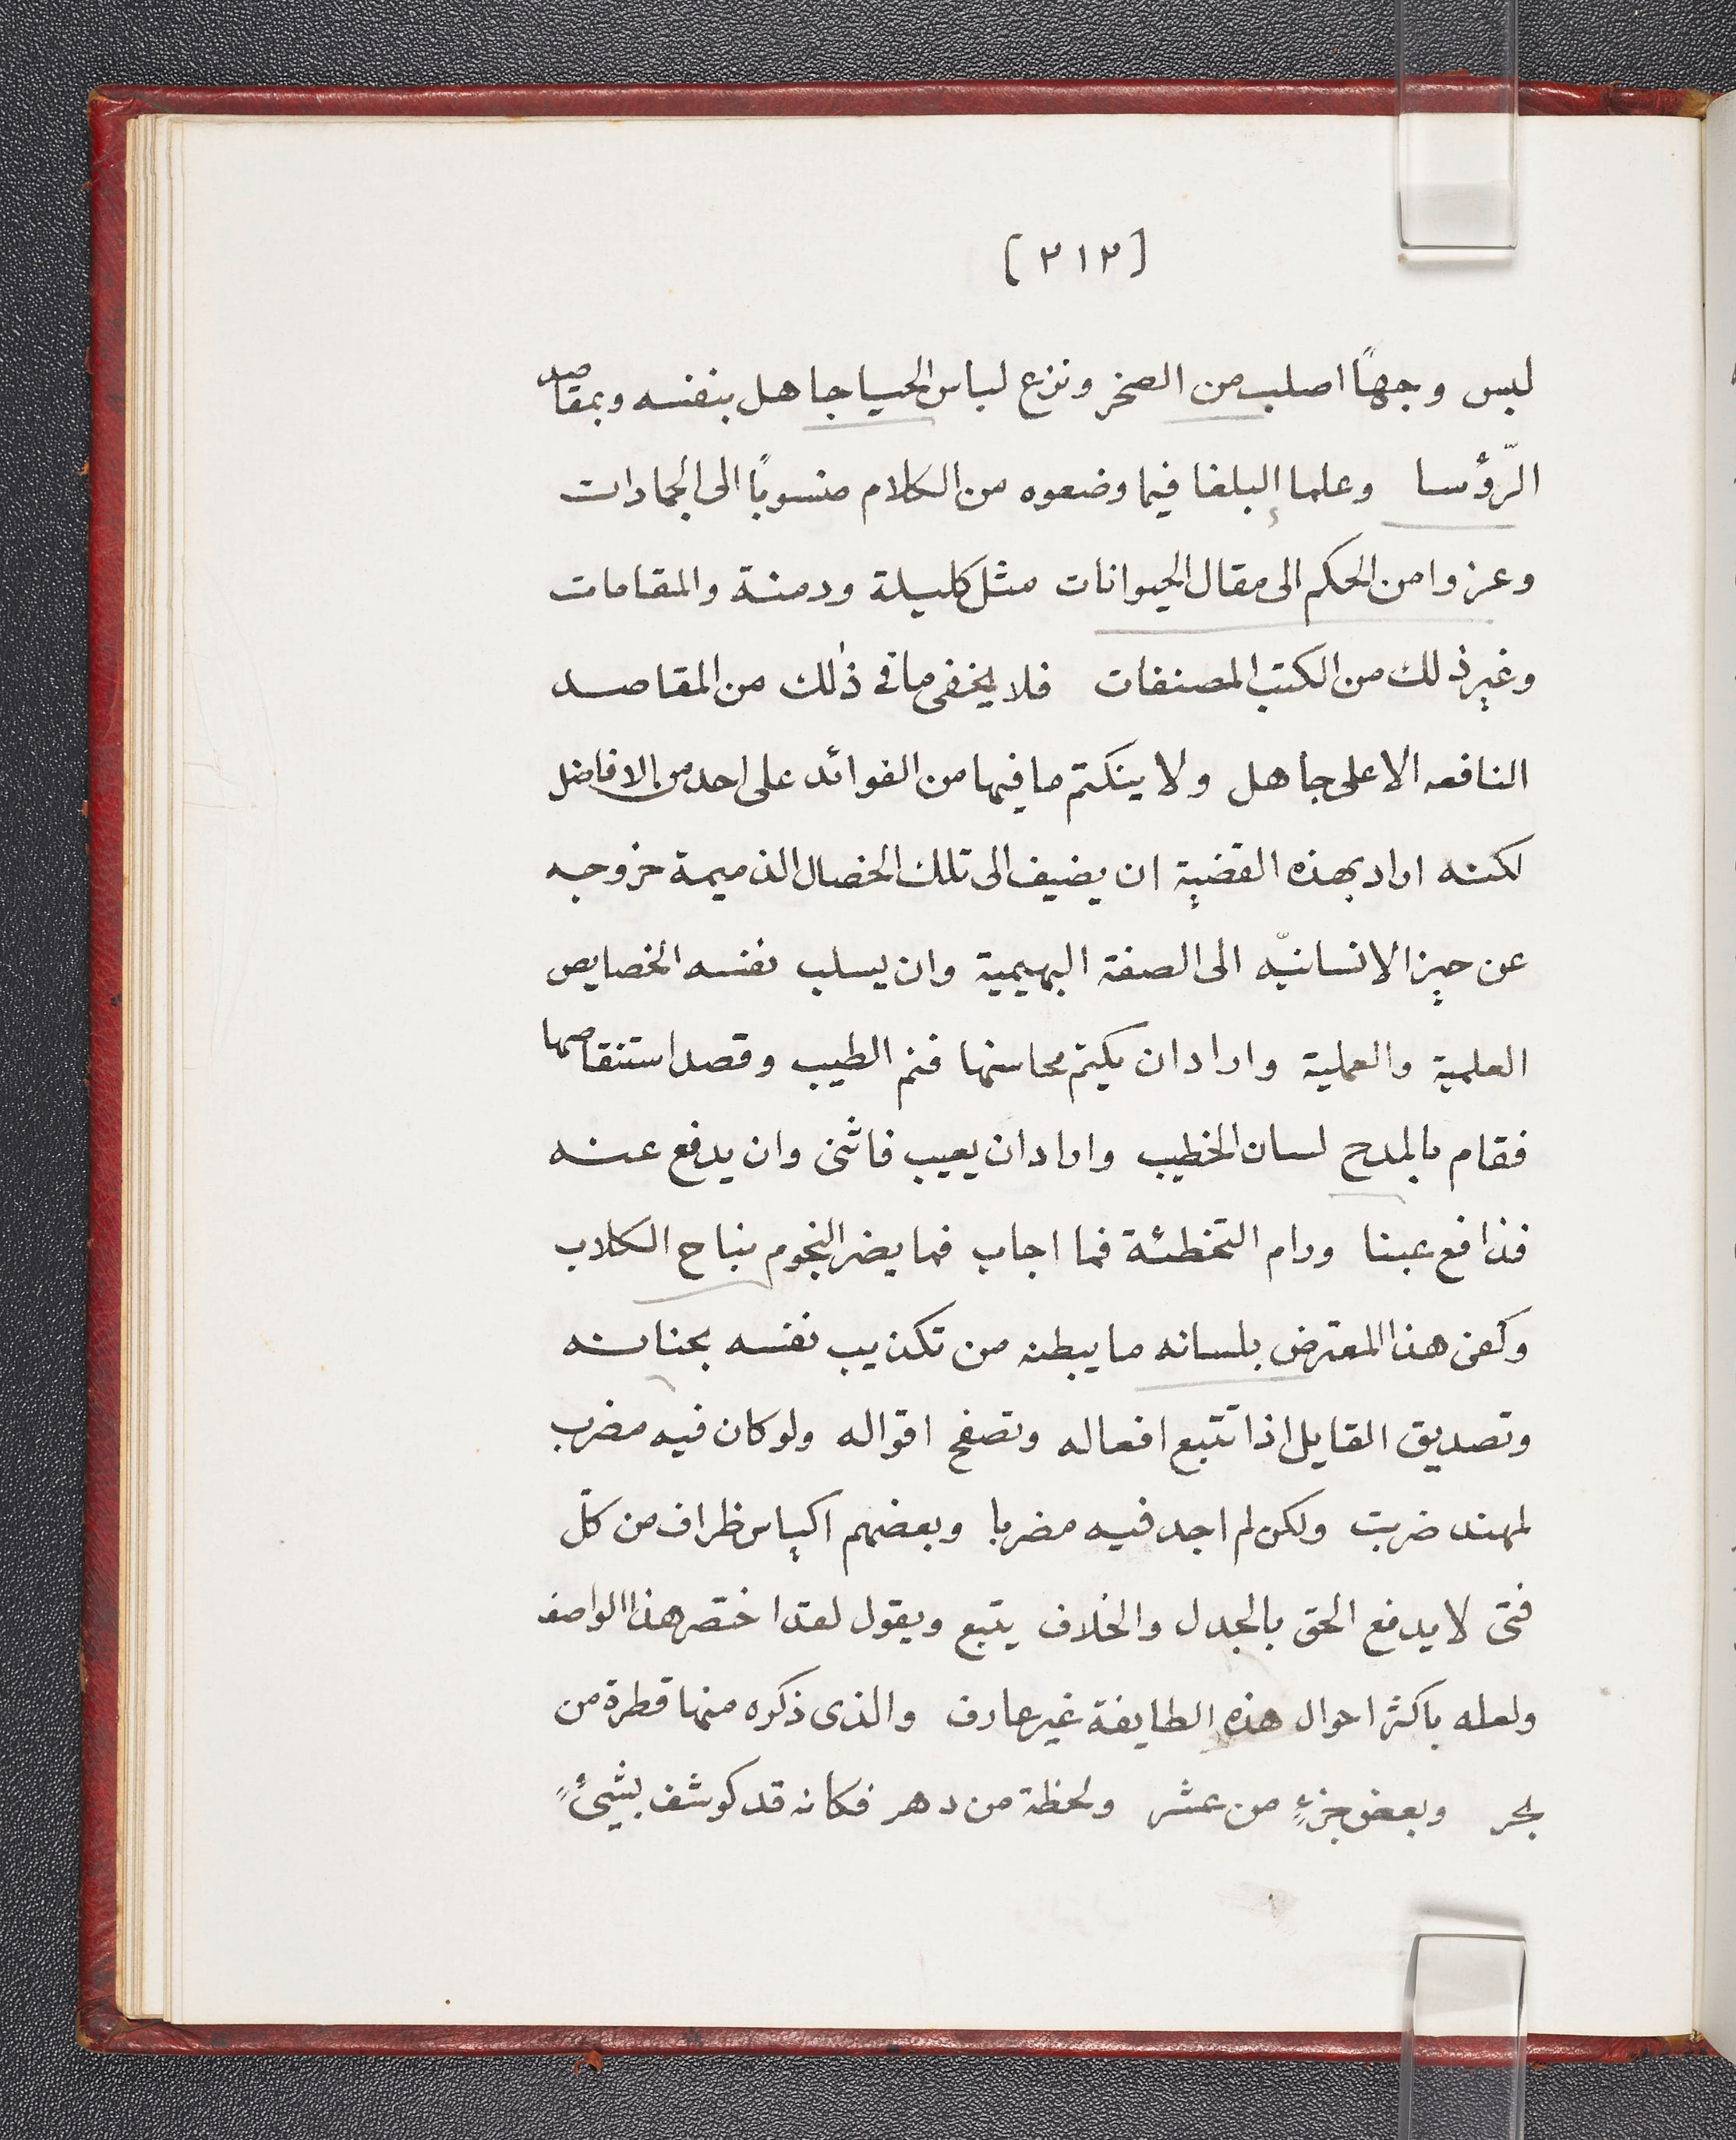 [٢١٢]
لبس وجهاً اصلب من الصخر ونزع لباس الحيا جاهل بنفسه وبمقاصد
الرّؤسا وعلما البلغا فيما وضعوه من الكلام منسوباً الى الجمادات
وعزوا من الحكم الى مقال الحيوانات مثل كليلة ودمنة والمقامات
وغير ذلك من الكتب المصنفات فلا يخفى ما فى ذلك من المقاصد
النافعه الا على جاهل ولا ينكتم ما فيها من الفوائد على احد من الافاضل
لكنه اراد بهذه القضية ان يضيف الى تلك الخصال الذميمة خروجه
عن حيز الانسانيّه الى الصفة البهيمية وان يسلب نفسه الخصايص
العلمية والعملية واراد ان يكتم محاسنها فنم الطيب وقصد استنقاصها
فقام بالمدح لسان الخطيب واراد ان يعيب فاثنى وان يدفع عنه
فدافع عبنا ورام التخطئة فما اجاب فما يضر النجوم نباح الكلاب
وكفى هذا المعترض بلسانه ما يبطنه من تكذيب نفسه بجنانه
وتصديق القايل اذا تتبع افعاله وتصفح اقواله ولو كان فيه مضرب
لمهند ضربت ولكن لم اجد فيه مضربا وبعضهم اكياس ظراف من كلّ
فتى لا يدفع الحق بالجدل والخلاف يتبع ويقول لقد اختصر هذا الواصف
ولعله باكثر احوال هذه الطايفة غير عارف والذى ذكره منها قطرة من
بحر وبعض جزءٍ من عشر ولحظة من دهر فكانه قد كوشف بشئٍ